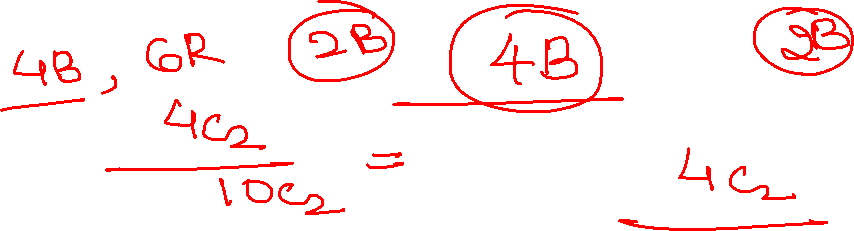 4B, 6R 2B 4B 2B
4C2
10C2 = 4C2